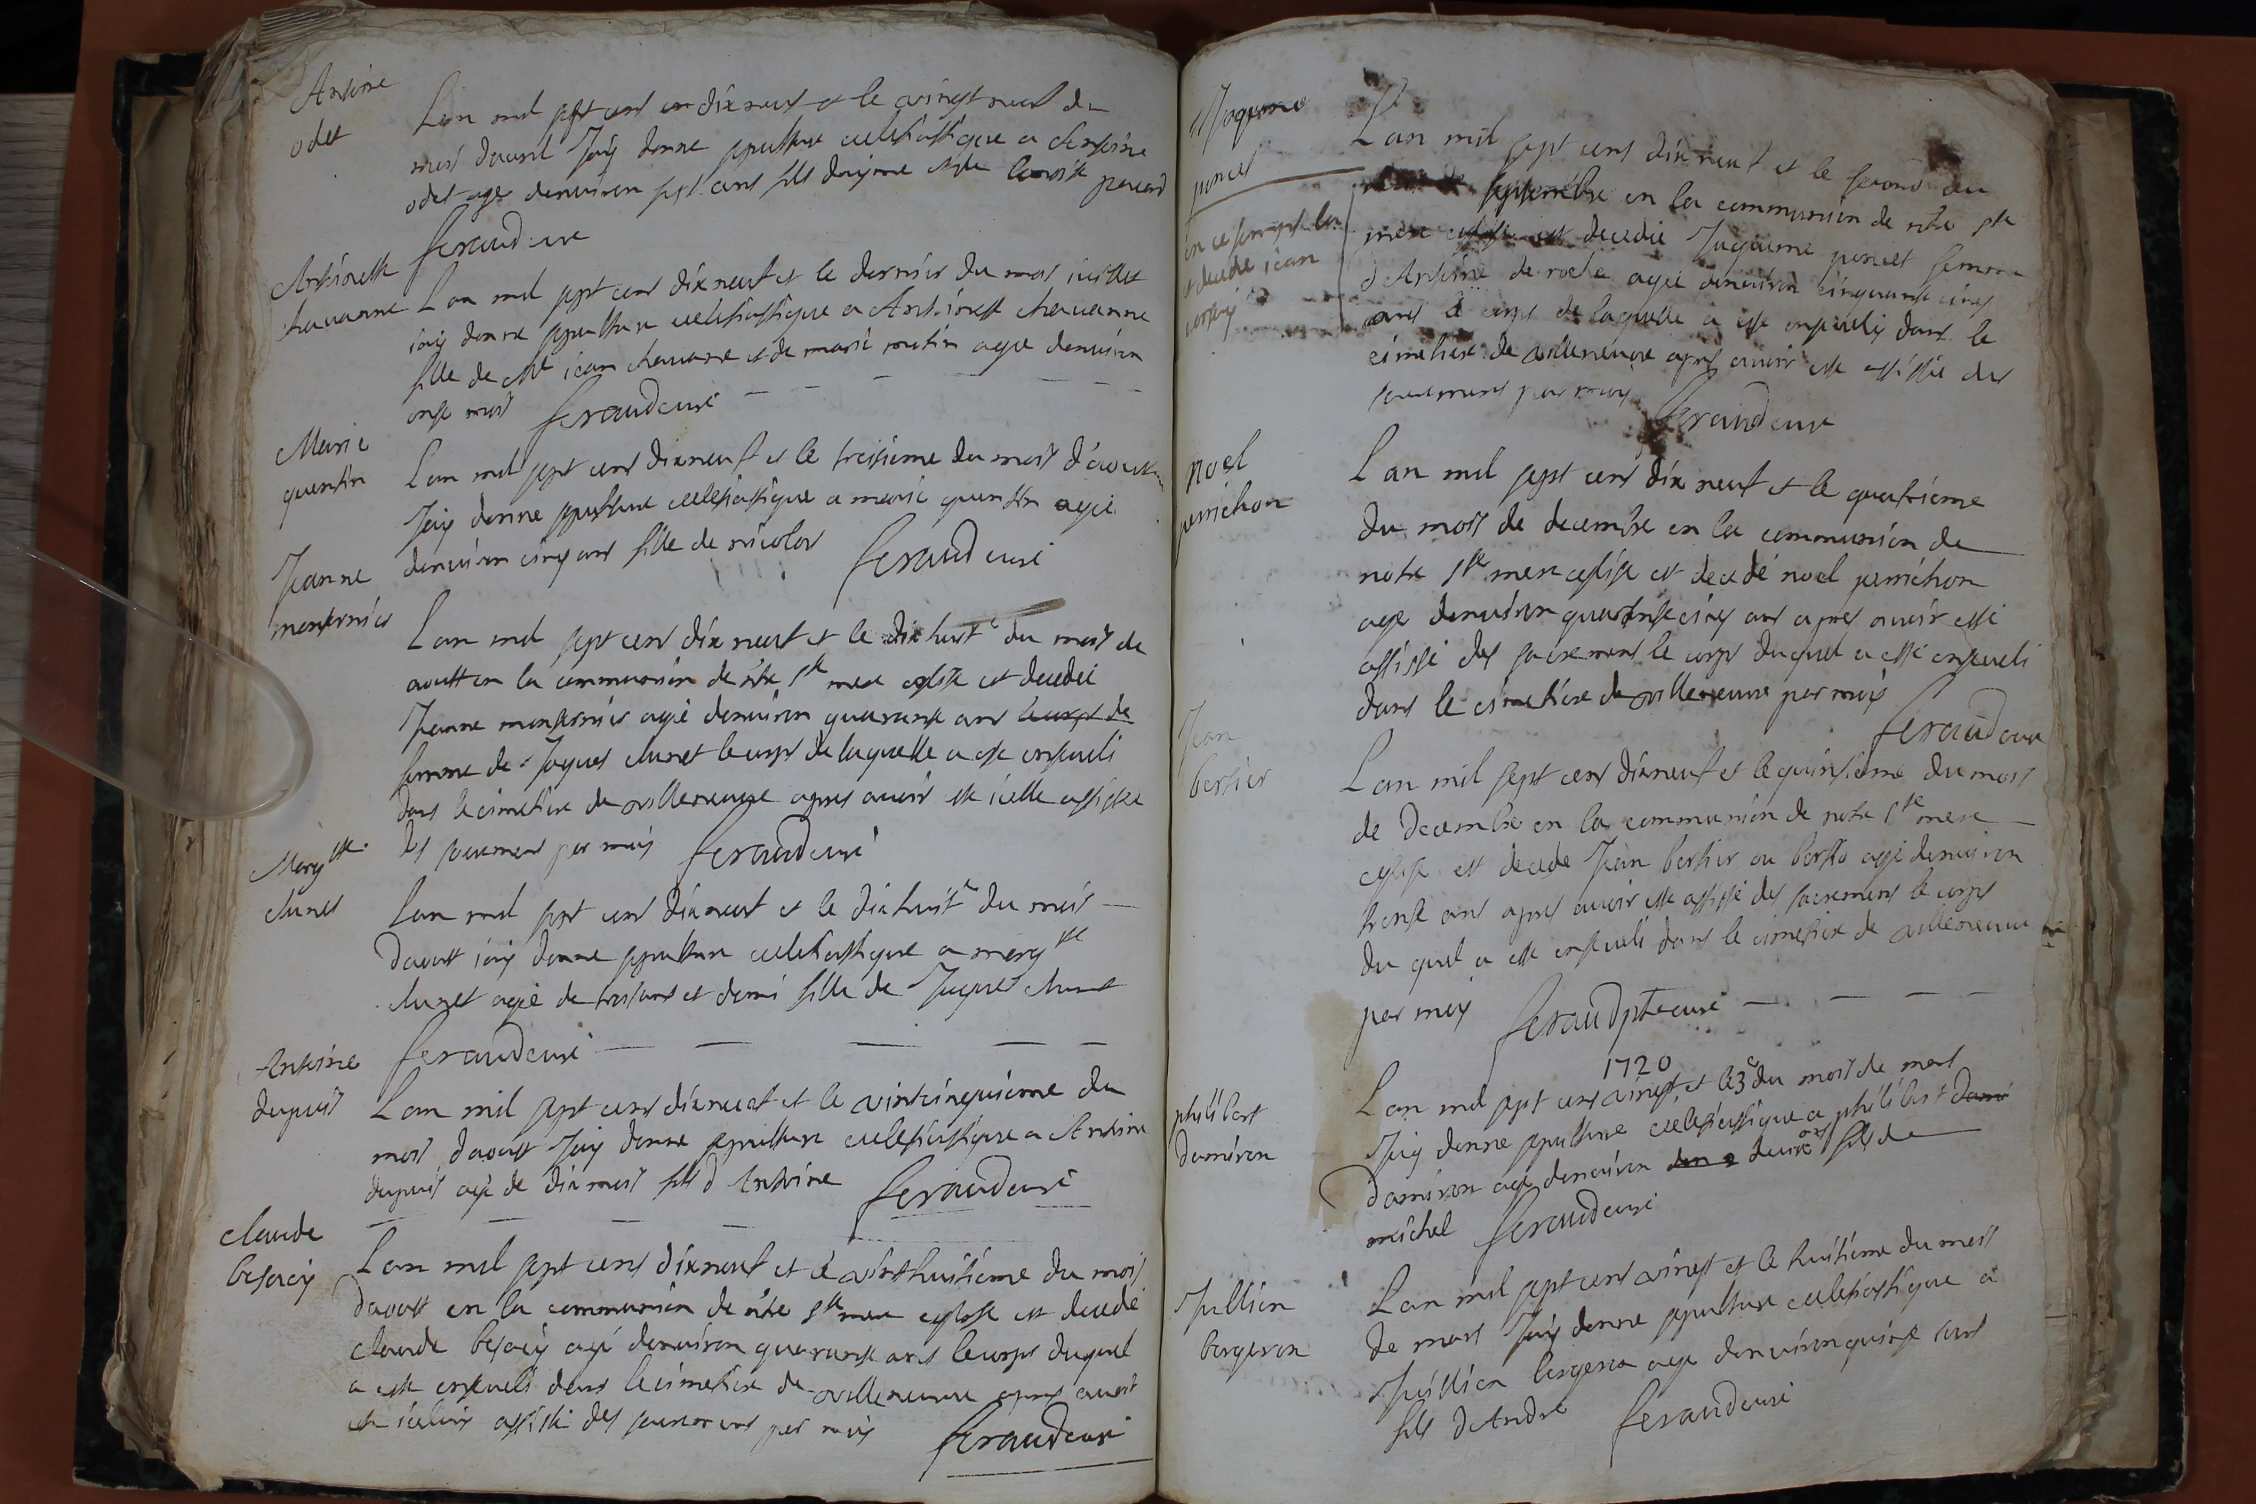 Antoine
odet
Lan mil sept cens en dix neuf et le vingt neuf du
mois davril Jay donne sepulture ecclesiastique a Antoine
odet age denviron sept ans fils
feraud cure
Antoinette
chavanne
Lan mil sept cens dix neuf et le dernier du mois juillet
jay donne sepulture ecclesiastique a Antoinette chavanne
fille de jean chavanne et de marie agee denviron
onse mois feraud curé
Marie
quentin
Lan mil sept cens dix neuf et le treisieme du mois d'aoust
Jay donne sepulture ecclesiastique a marie quentin agée
denviron cinq ans fille de nicolas feraud curé
Jeanne
monternier
Lan mil sept cens dix neuf et le dix huit e du mois de
aoust en la communion de nbre ste mere eglise est decedée
Jeanne monternier agée denviron quarante ans le corps de
femme de Jaques clunet le corps de laquelle a esté enseveli
dans le cimetiere de villeneuve apres avoir esté icelle assistée
des sacremens par moy feraud curé
Marg tte
clunet
Lan mil sept cens dix neuf et le dix huit e du mois
daoust jay donne sepulture ecclesiastique a marg tte
clunet agée de trois ans et demi fille de Jaques clunet
feraud curé
Antoine
dupuis
Lan mil sept cens dix neuf et le vint cinquieme du
mois daoust Jay donne sepulture ecclesiastique a Antoine
dupuis agé de dix mois fils d'Antoine feraud curé
claude
besacy
Lan mil sept cens dix neuf et le vint huitieme du mois
daoust en la communion de nbre ste mere eglise est decedé
claude besacy agé denviron quarante ans le corps duquel
a esté enseveli dans le cimetiere de villeneuve apres avoir
esté iceluy assisté des sacremens par moy feraud curé
Jaqueme
poncet
Lan mil sept cens dix neuf et le second du
septembre en la communion de nbre ste
mere eglise est decedée Jaqueme poncet femme
d'Antoine de roche agée denviron cinquante cinq
ans le corps de laquelle a esté enseveli dans le
cimetiere de villeneuve apres avoir esté assistée des
sacremens par moy feraud curé
en ce temps la
decede jean
noel
perrichon
Lan mil sept cens dix neuf et le quatrieme
du mois de decembre en la communion de
notre ste mere eglise est decedé noel perrichon
age denviron quarante cinq ans apres avoir esté
assisté des sacremens le corps duquel a esté enseveli
dans le cimetiere de villeneuve par moy
feraud curé
Jean
bertier
Lan mil sept cens dix neuf et le quinsieme du mois
de decembre en la communion de notre ste mere
eglise est decede Jean bertier ou agé denviron
trente ans apres avoir esté assisté des sacremens le corps
du quel a esté enseveli dans le cimetiere de villeneuve
par moy feraud ptre curé
1720
philibert
damiron
Lan mil sept cens vingt et le 3e du mois de mars
Jay donne sepulture ecclesiastique a philibert dami
damiron agé denviron deux ans fils de
michel feraud curé
Jullien
bergeron
Lan mil sept cens vingt et le huitieme du mois
de mars Jay donne sepulture ecclesiastique a
Jullien bergeron age denviron quinse ans
fils d'Andre feraud curé